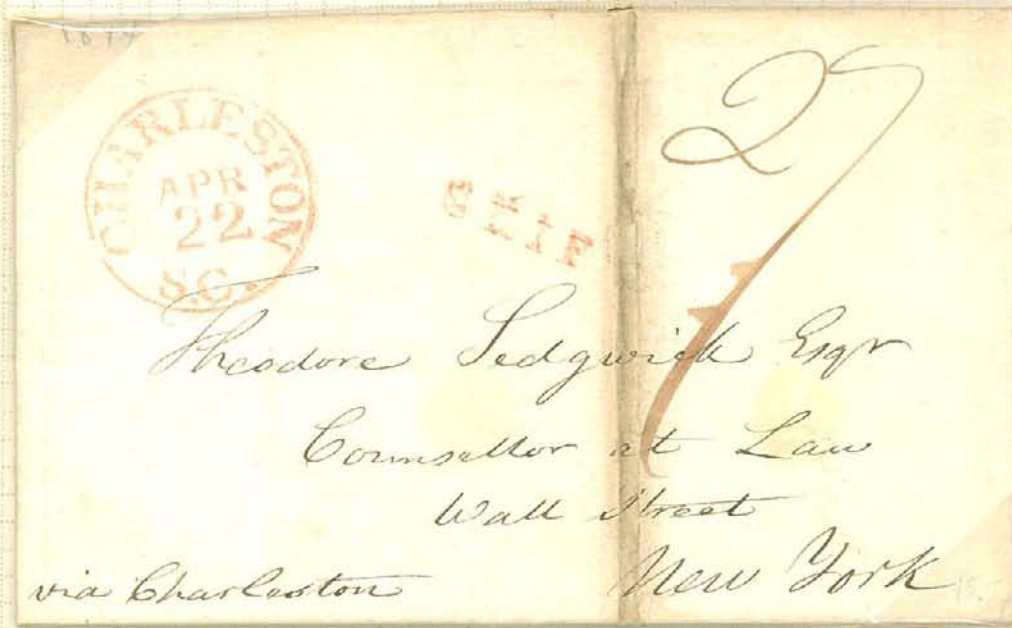 CHARLESTON
APR
22
S.C.
SHIP
27
Theodore Sedgwick Esqr
Counsellor at Law
Wall Street
New York
via Charleston